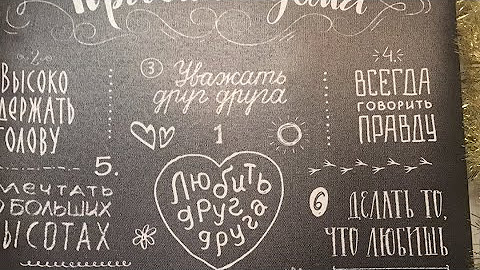 1
Любить
друг
друга
2.
Высоко
держать
голову
3
Уважать
друг друга
4.
Всегда
говорить
правду
5.
Мечтать
о больших
высотах
6
Делать то,
что любишь